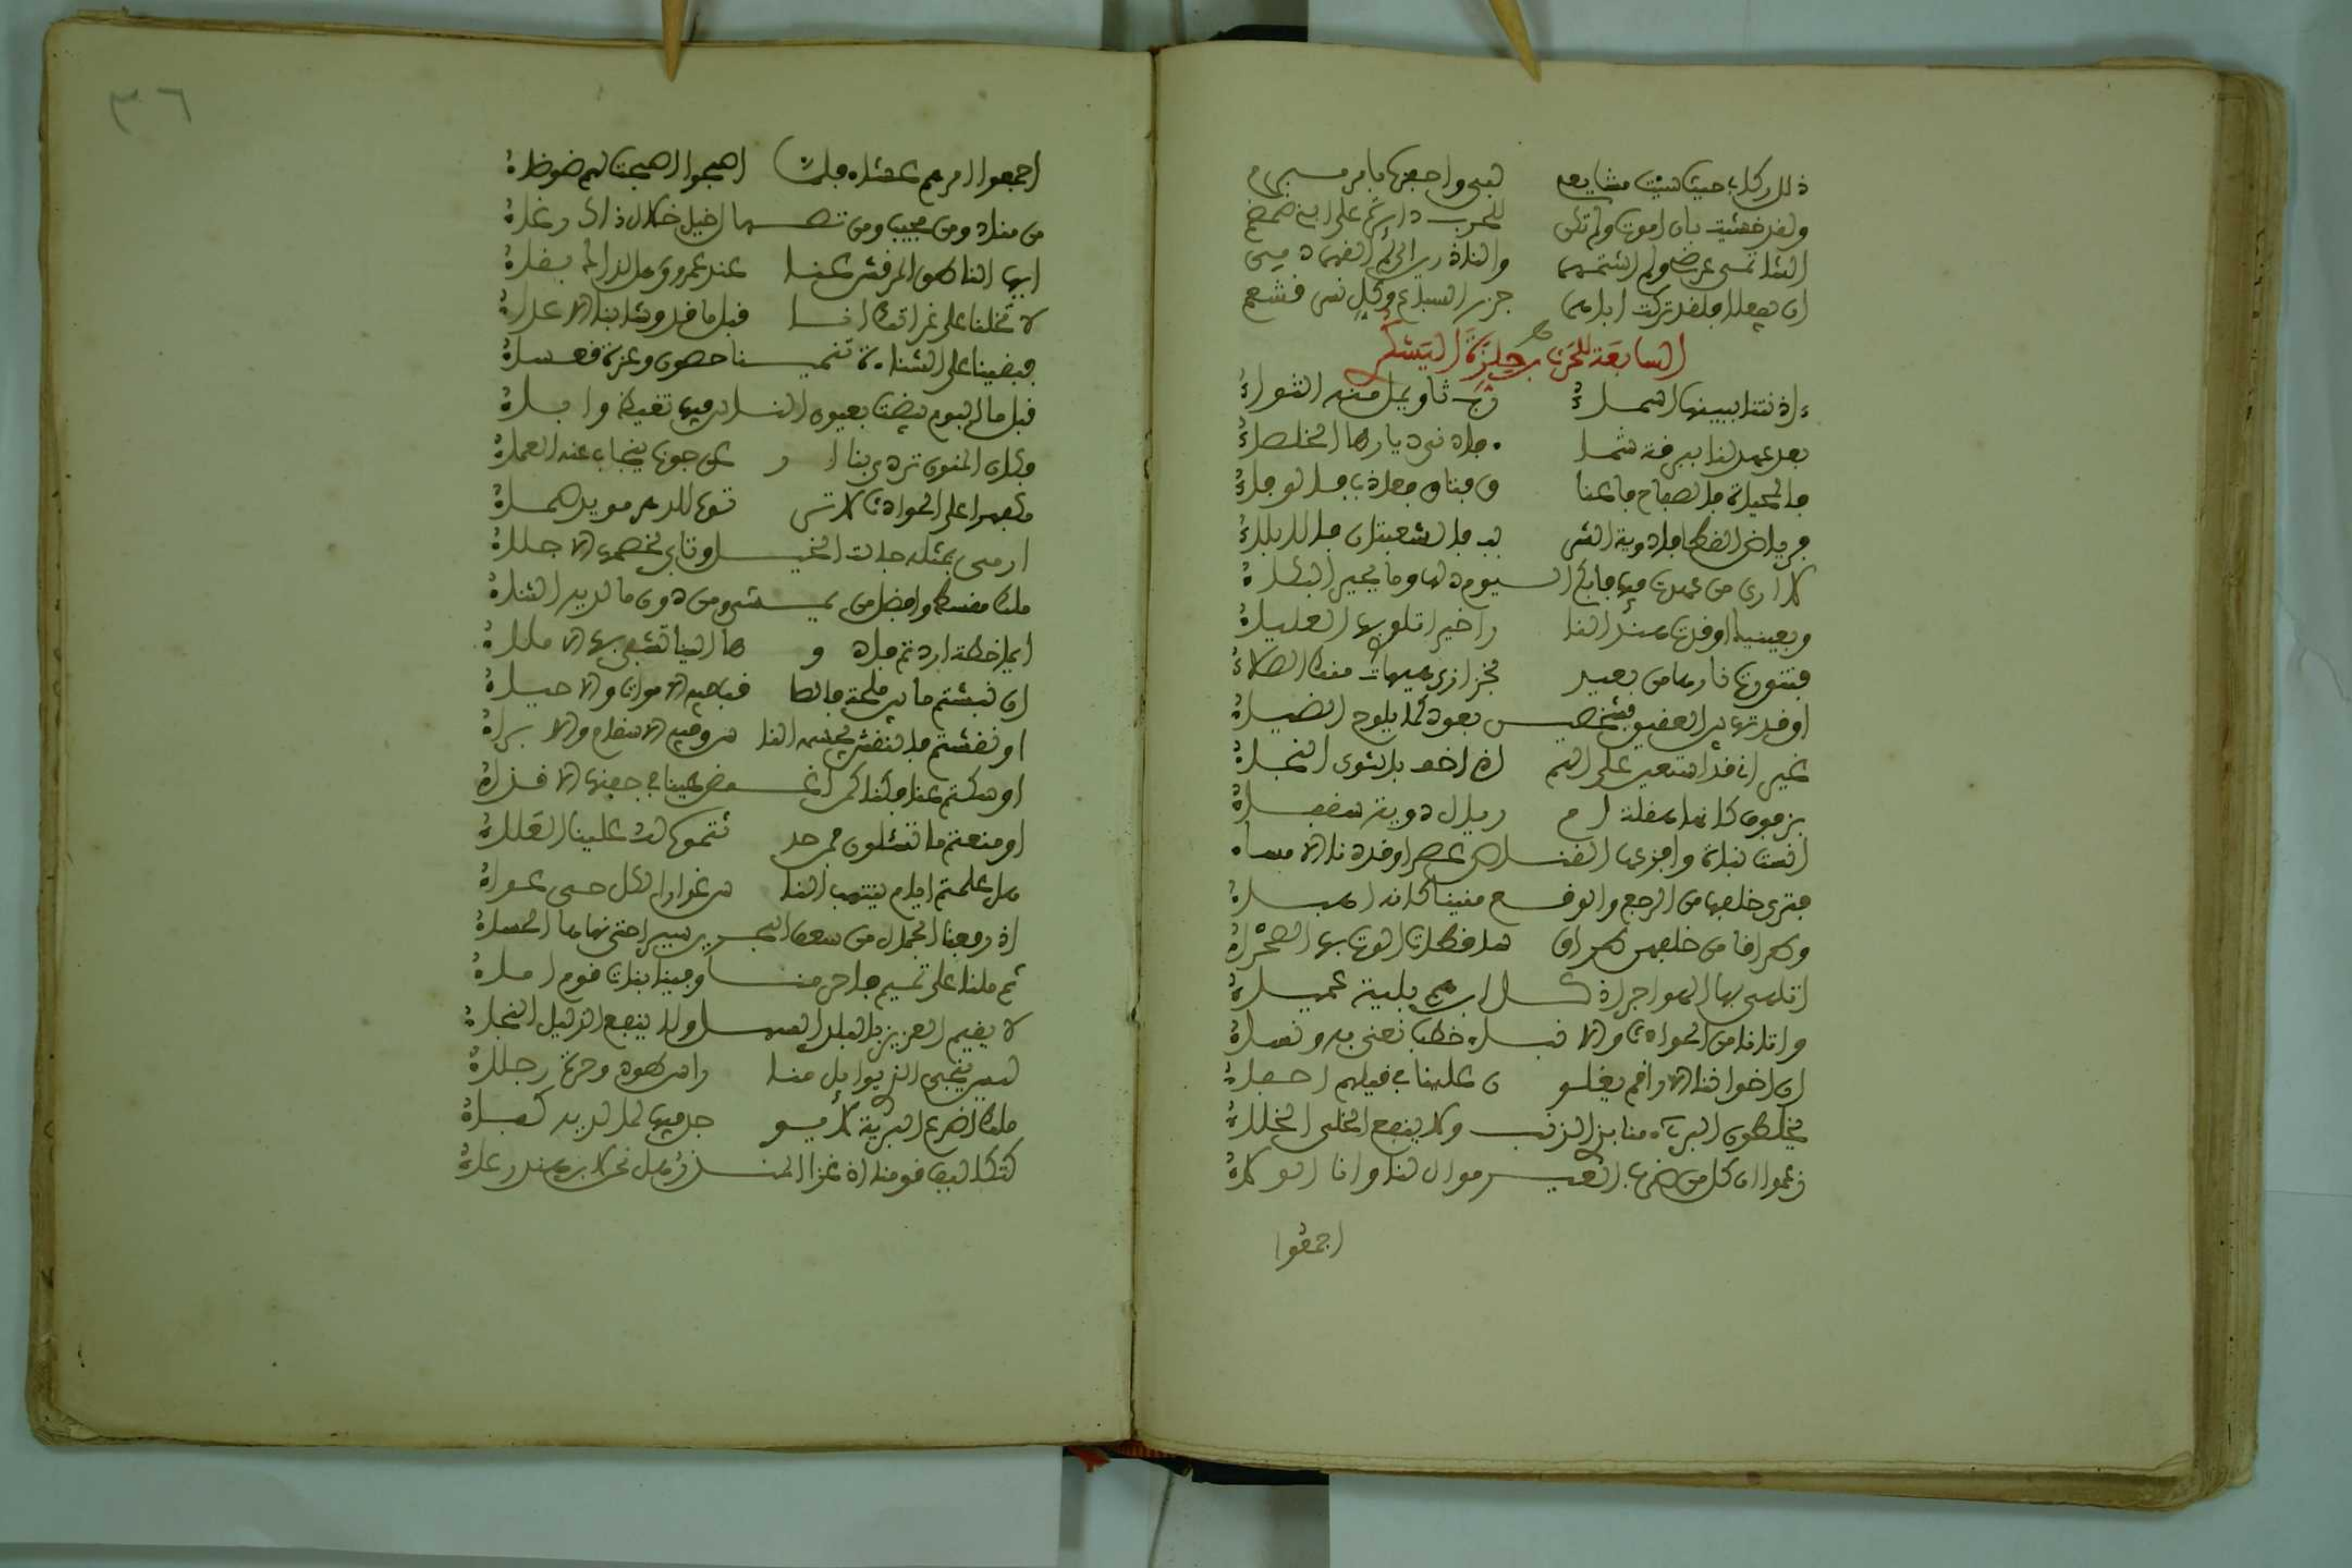 ذلل ركابي حيث شئت مشايعي لبي واحفزه بامر مبرم
ولقد خشيت بان اموت ولم تكن للحرب دايرة على ابني ضمضم
الشاتمي عرضي ولم اشتمهما والناذرين اذا لم القهما دمي
ان يفعلا فلقد تركت اباهما جزر السباع وكل نسر قشعم
السابعة للحرث بن حلزة اليشكري
ءاذنتنا ببينها اسماء رب ثاو يمل منه الثواء
بعد عهد لنا ببرقة شما ء فادنى ديارها الخلصاء
فالمحياة فالصفاح فاعنا ق فتاق فعاذب فالوفاء
فرياض القطا فاودية الشر بب فالشعبتان فالابلاء
لا ارى من عهدت فيها فابكي اليوم دلها وما يحير البكاء
وبعينيك اوقدت هند النا را اخيرا تلوي بها العلياء
فتنورت نارها من بعيد بخزازى هيهات منك الصلاء
اوقدتها بين العقيق فشخصين بعود كما يلوح الضياء
غير اني قد استعين على الهم اذا خف بالثوي النجاء
بزفوف كانها هقلة ام رئال دوية سقفاء
انست نباة وافزعها القناص عصرا وقد دنا الامساء
فترى خلفها من الرجع والوقع منينا كانه اهباء
وطراقا من خلفهن طراق ساقطات الوت بها الصحراء
اتلهى بها الهواجر اذ كل ابن هم بلية عمياء
واتانا من الحوادث والانباء خطب نعنى به ونساء
ان اخواننا الاراقم يغلو ن علينا في قيلهم احفاء
يخلطون البريء منا بذي الذنب ولا ينفع الخلي الخلاء
زعموا ان كل من ضرب العير موال لنا وانا الولاء
اجمعوا
٣٦
اجمعوا امرهم عشاء فلما اصبحوا اصبحت لهم ضوضاء
من مناد ومن مجيب ومن تصهال خيل خلال ذاك رغاء
ايها الناطق المرقش عنا عند عمرو وهل لذاك بقاء
لا تخلنا على غراتك انا قبل ما قد وشى بنا الاعداء
فبقينا على الشناءة تنمينا حصون وعزة قعساء
قبل ما اليوم بيضت بعيون الناس فيها تغيظ واباء
وكان المنون تردي بنا ار عن جونا ينجاب عنه العماء
مكفهرا على الحوادث لا تر توه للدهر مويد صماء
ارمي بمثله جالت الخيل وتابى لخصمها الاجلاء
ملك مقسط وافضل من يمشي ومن دون ما لديه الثناء
ايما خطة اردتم فادو ها الينا تشفى بها الاملاء
ان نبشتم ما بين ملحة فالصا قب فيه الاموات والاحياء
او نقشتم فالنقش يجشمه النا س وفيه الاسقام والابراء
او سكتم عنا فكنا كمن اغمض عينا في جفنها الاقذاء
او منعتم ما تسئلون فمن حد ثتموه له علينا العلاء
هل علمتم ايام ينتهب النا س غوارا لكل حي عواء
اذ رفعنا الجمال من سعف البحرين سيرا حتى نهاها الحساء
ثم ملنا على تميم فاحرمنا وفينا بنات قوم اماء
لا يقيم العزيز بالبلد السهل ولا ينفع الذليل النجاء
ليس ينجي الذي يوايل منا راس طود وحرة رجلاء
ملك اضرع البرية لا يو جد فيها لما لديه كفاء
كتكاليف قومنا اذ غزا المنذر هل نحن لابن هند رعاء